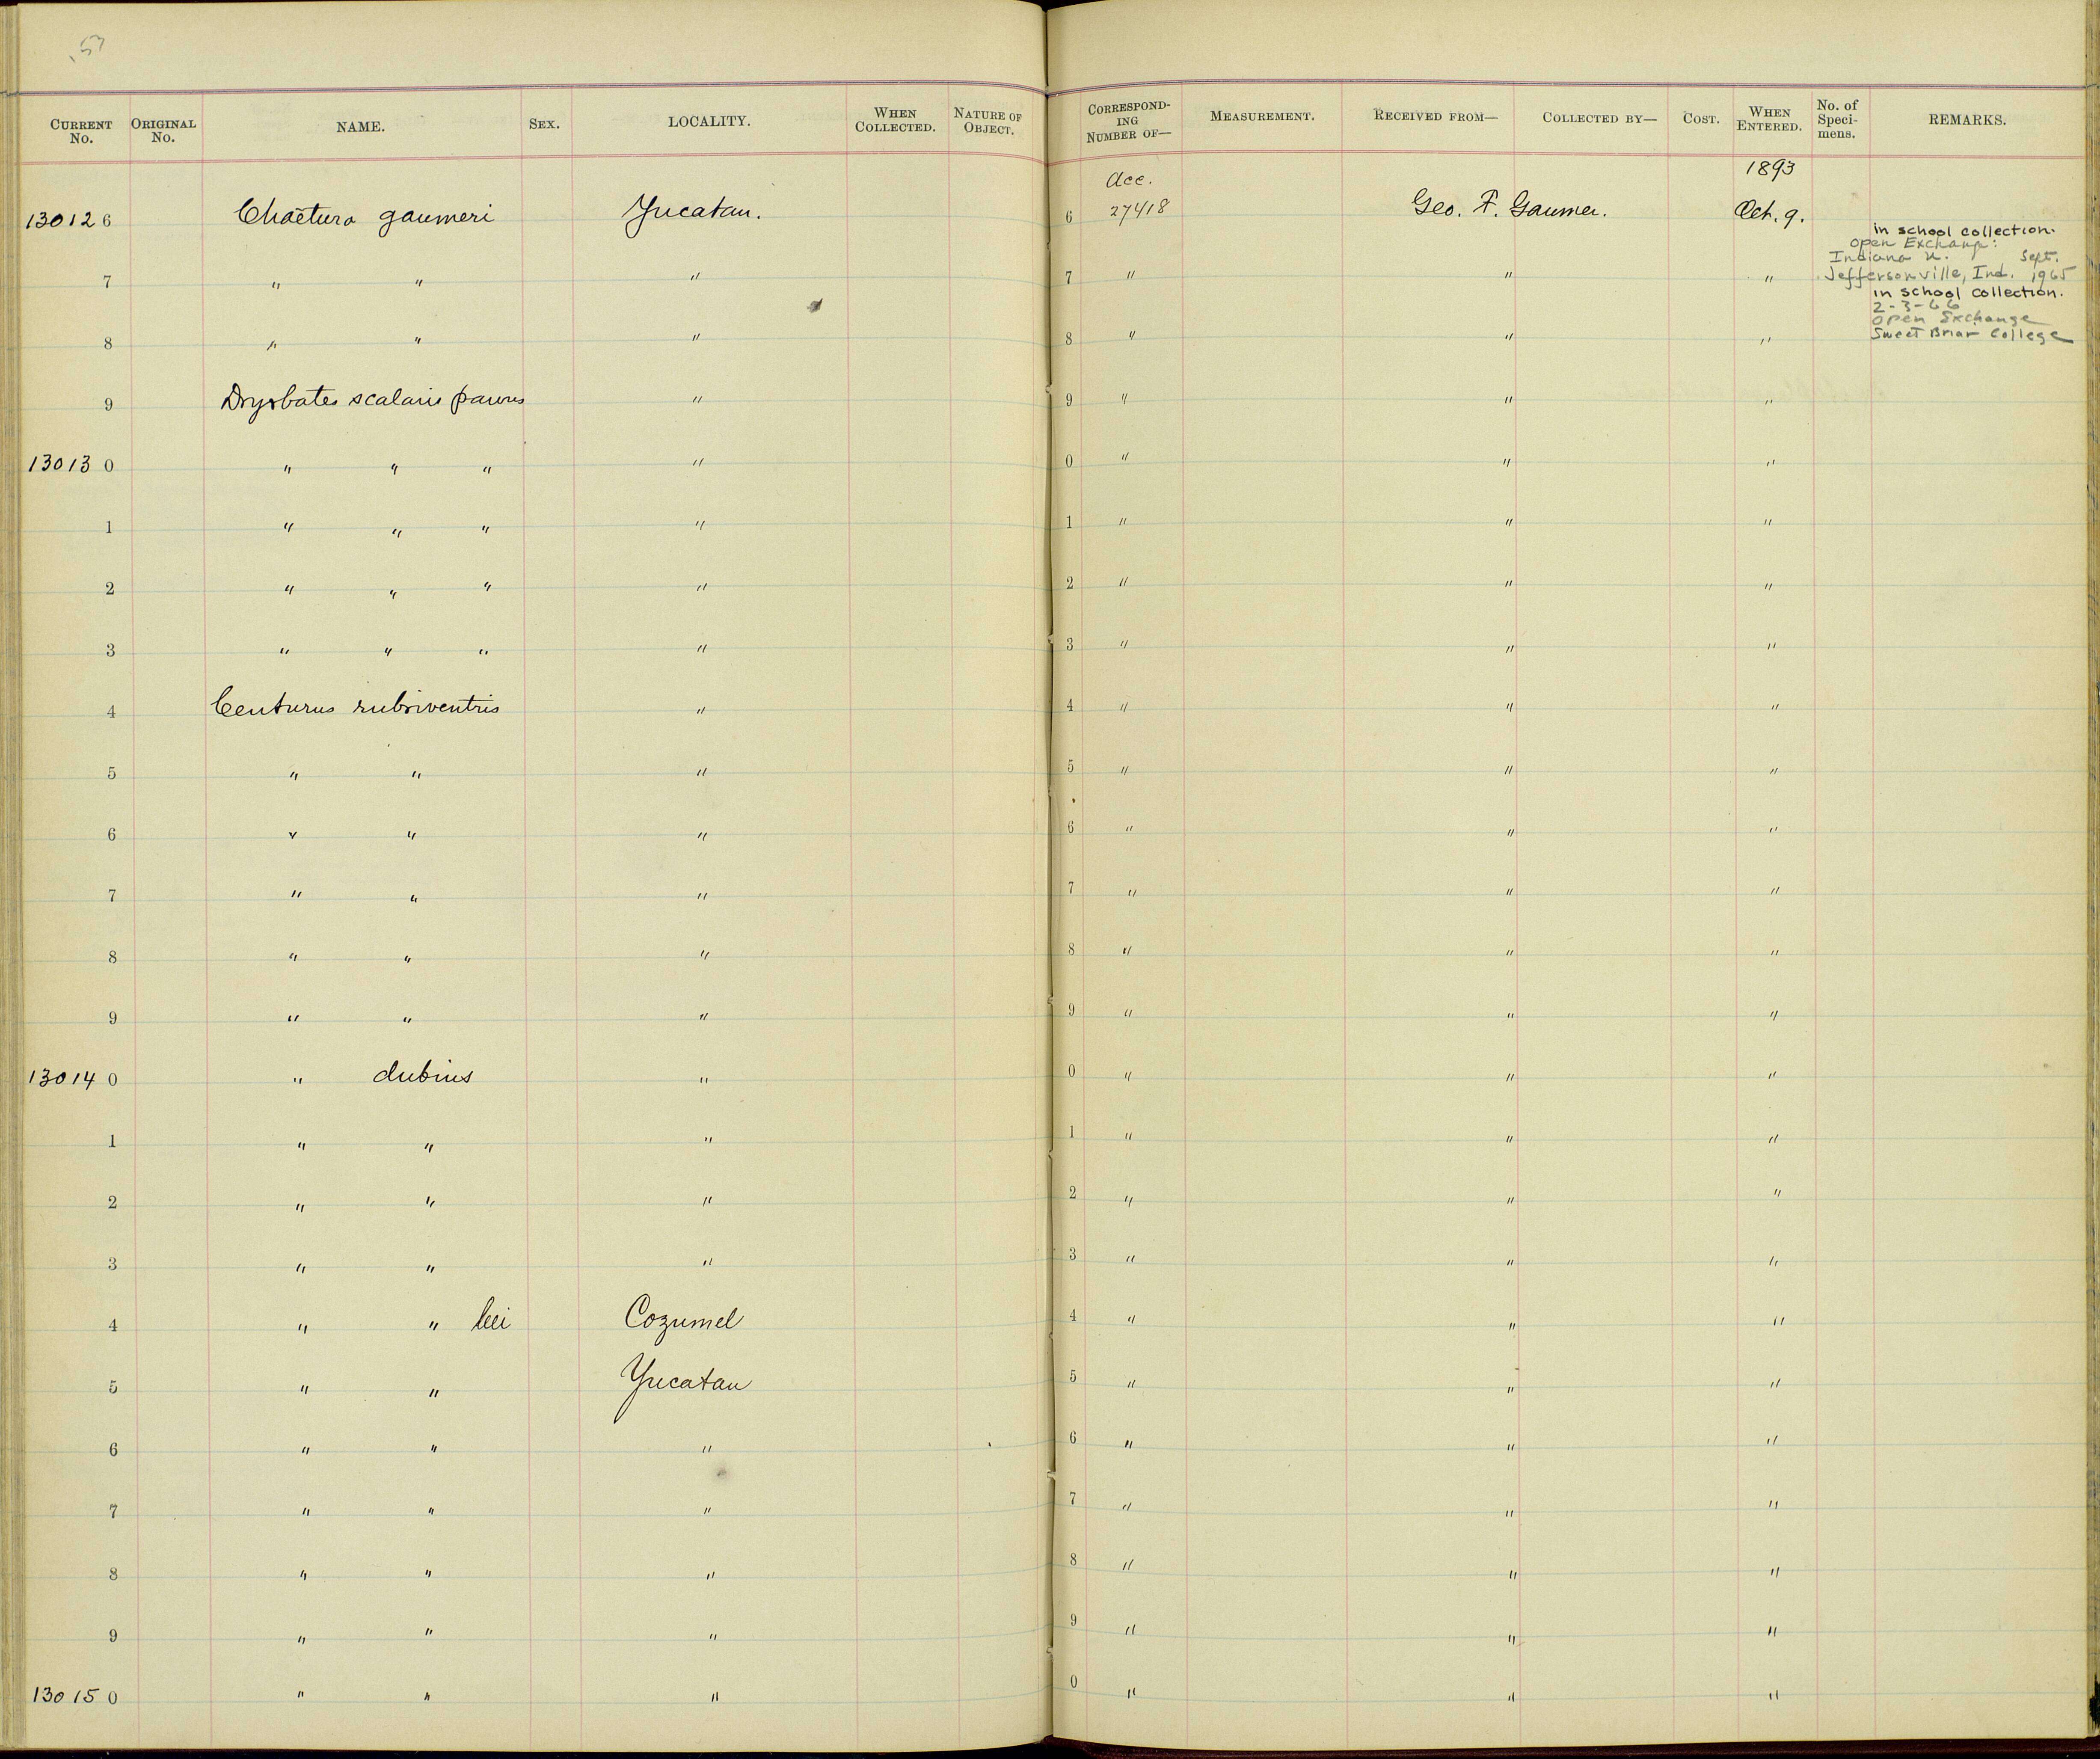 57
CURRENT No. ORIGINAL No. NAME. SEX. LOCALITY. WHEN COLLECTED. NATURE OF OBJECT. CORRESPONDING NUMBER OF— MEASUREMENT. RECEIVED FROM— COLLECTED BY— COST. WHEN ENTERED. No. of Specimens. REMARKS.
Acc. 1893
130126 Chaetura gaumeri Yucatan. 6 27418 Geo. F. Gaumer. Oct. 9. in school collection.
Open Exchange:
Indiana U. Sept.
7 " " " 7 " " " Jeffersonville, Ind. 1965
in school collection.
2-3-66
Open Exchange
8 " " " 8 " " " Sweet Briar College
9 Dryobates scalaris parvus " 9 " " "
130130 " " " " 0 " " "
1 " " " " 1 " " "
2 " " " " 2 " " "
3 " " " " 3 " " "
4 Centurus rubriventris " 4 " " "
5 " " " 5 " " "
6 " " " 6 " " "
7 " " " 7 " " "
8 " " " 8 " " "
9 " " " 9 " " "
130140 " dubius " 0 " " "
1 " " " 1 " " "
2 " " " 2 " " "
3 " " " 3 " " "
4 " " leei Cozumel 4 " " "
5 " " Yucatan 5 " " "
6 " " " 6 " " "
7 " " " 7 " " "
8 " " " 8 " " "
9 " " " 9 " " "
130150 " " " 0 " " "